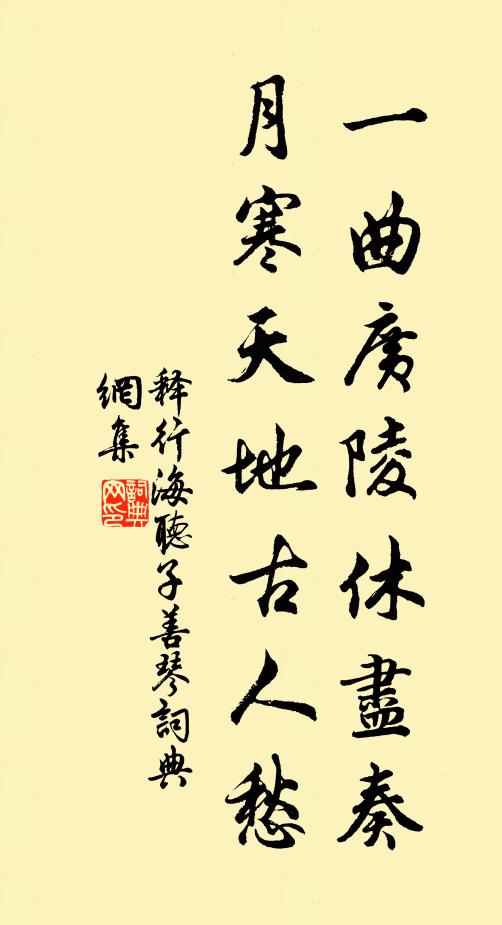 一曲廣陵休盡奏
月寒天地古人愁
释行海聽子善琴詞典
網集
詞典
网印